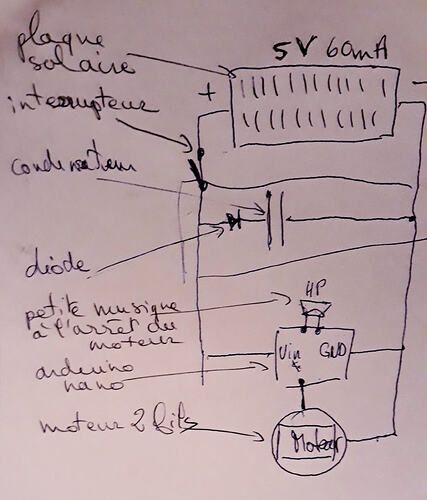 plaque
solaire
5V 60mA
interrupteur
+
-
condensateur
diode
petite musique
à l'arrêt du
moteur
HP
arduino
nano
Vin
GND
+
moteur 2 fils
Moteur